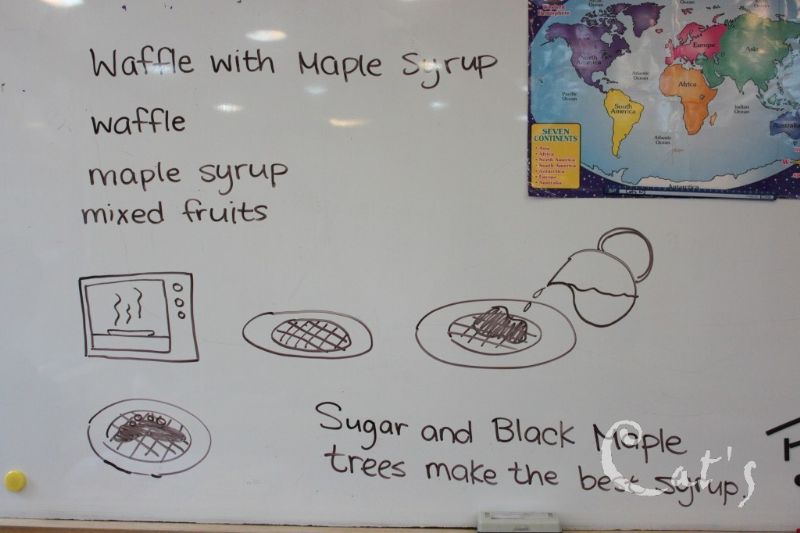 Waffle with Maple Syrup
waffle
maple syrup
mixed fruits
Sugar and Black Maple
trees make the best syrup.
Cat's
North America
Europe
Asia
Africa
South America
Atlantic Ocean
Pacific Ocean
Indian Ocean
Atlantic Ocean
Australia
Antarctica
SEVEN
CONTINENTS
• Asia
• Africa
• North America
• South America
• Antarctica
• Europe
• Australia